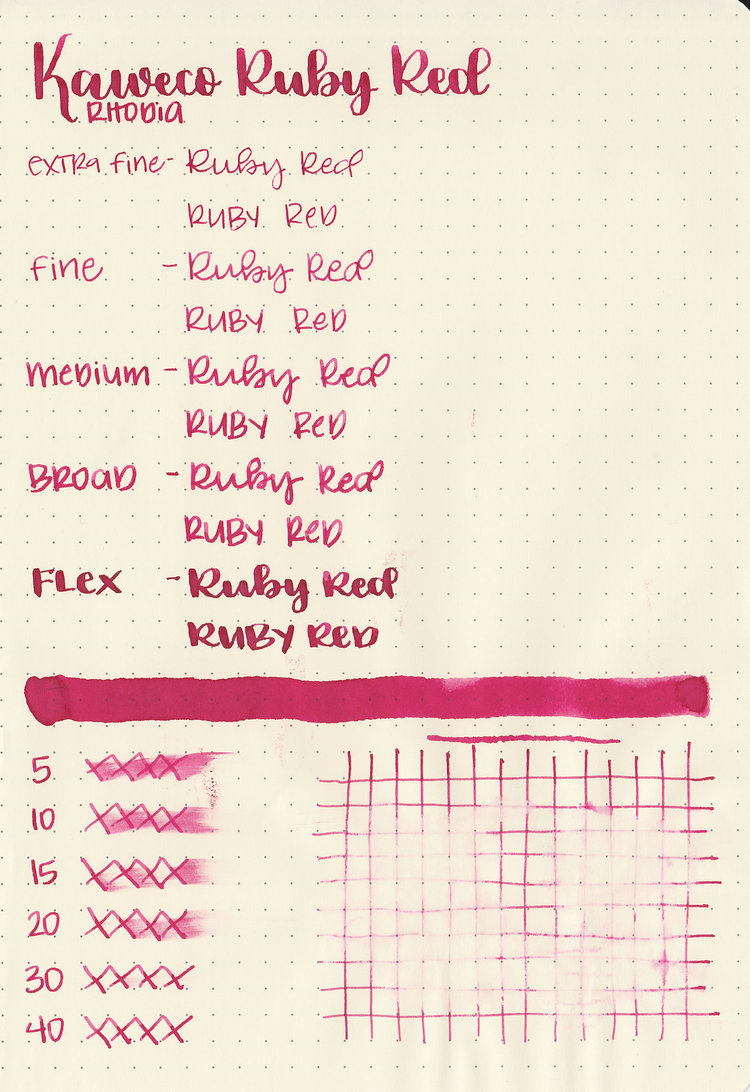 Kaweco Ruby Red
RHODIA
EXTRA Fine - Ruby Red
RUBY RED
Fine - Ruby Red
RUBY ReD
Medium - Ruby Red
RUBY ReD
BROAD - Ruby Red
RUBY ReD
FLex - Ruby Red
RUBY ReD
5 XXXX
10 XXXX
15 XXXX
20 XXXX
30 XXXX
40 XXXX